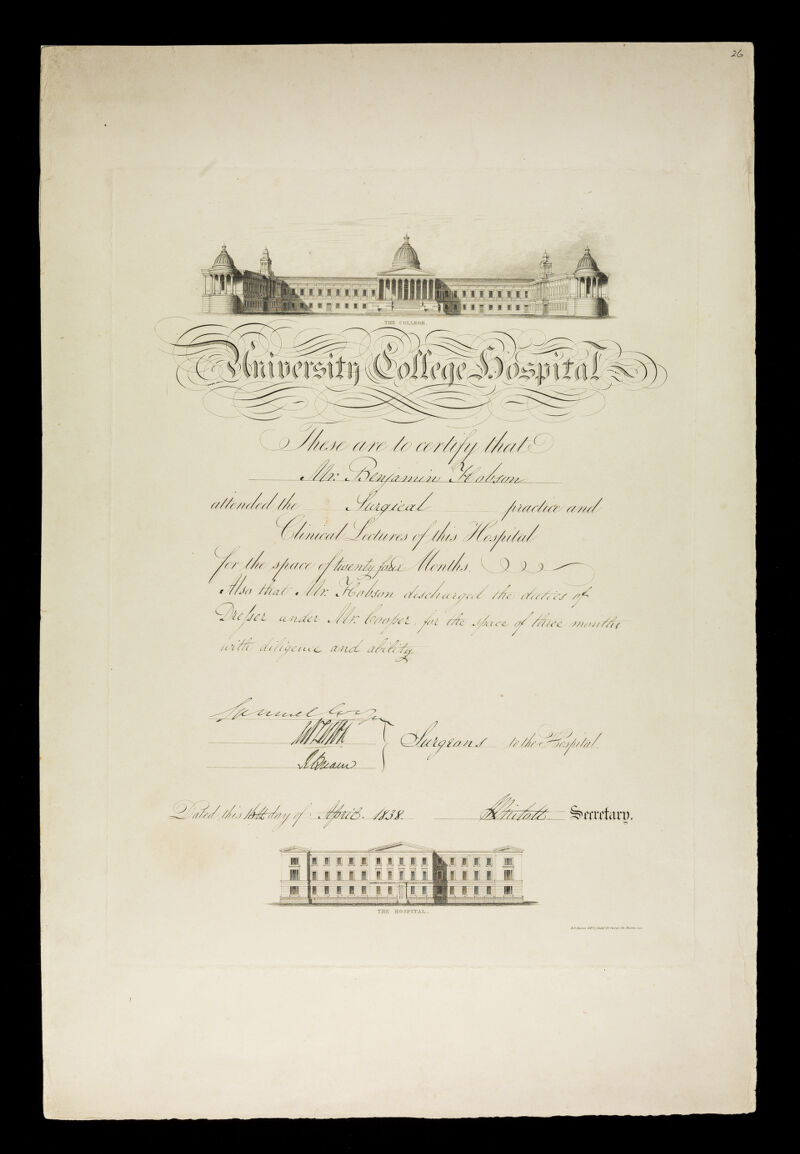 26
THE COLLEGE.
University College Hospital
These are to certify that
Mr. Benjamin Hobson
attended the Surgical practice and
Clinical Lectures of this Hospital
for the space of twenty four Months.
Also that Mr. Hobson discharged the duties of
Dresser under Mr. Cooper for the space of three months
with diligence and ability
Samuel Cooper
Surgeons to the Hospital.
Dated this day of April 1838.
Secretary.
THE HOSPITAL.